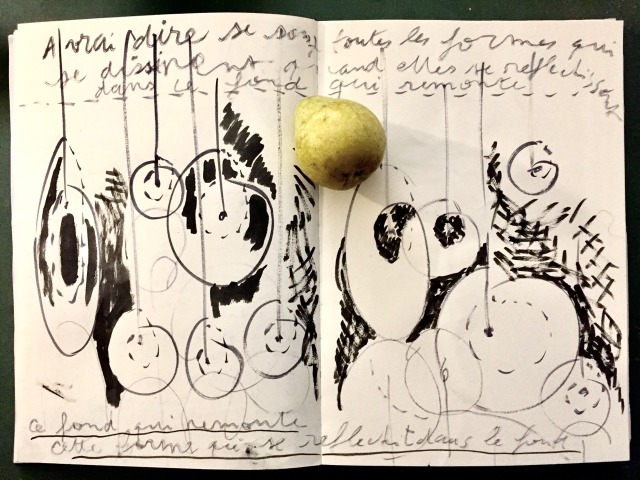 A vrai dire se sont toutes les formes qui
se dissipent quand elles se reflechissent
dans ce fond qui remonte
ce fond qui remonte
cette forme qui se reflechit dans le fond